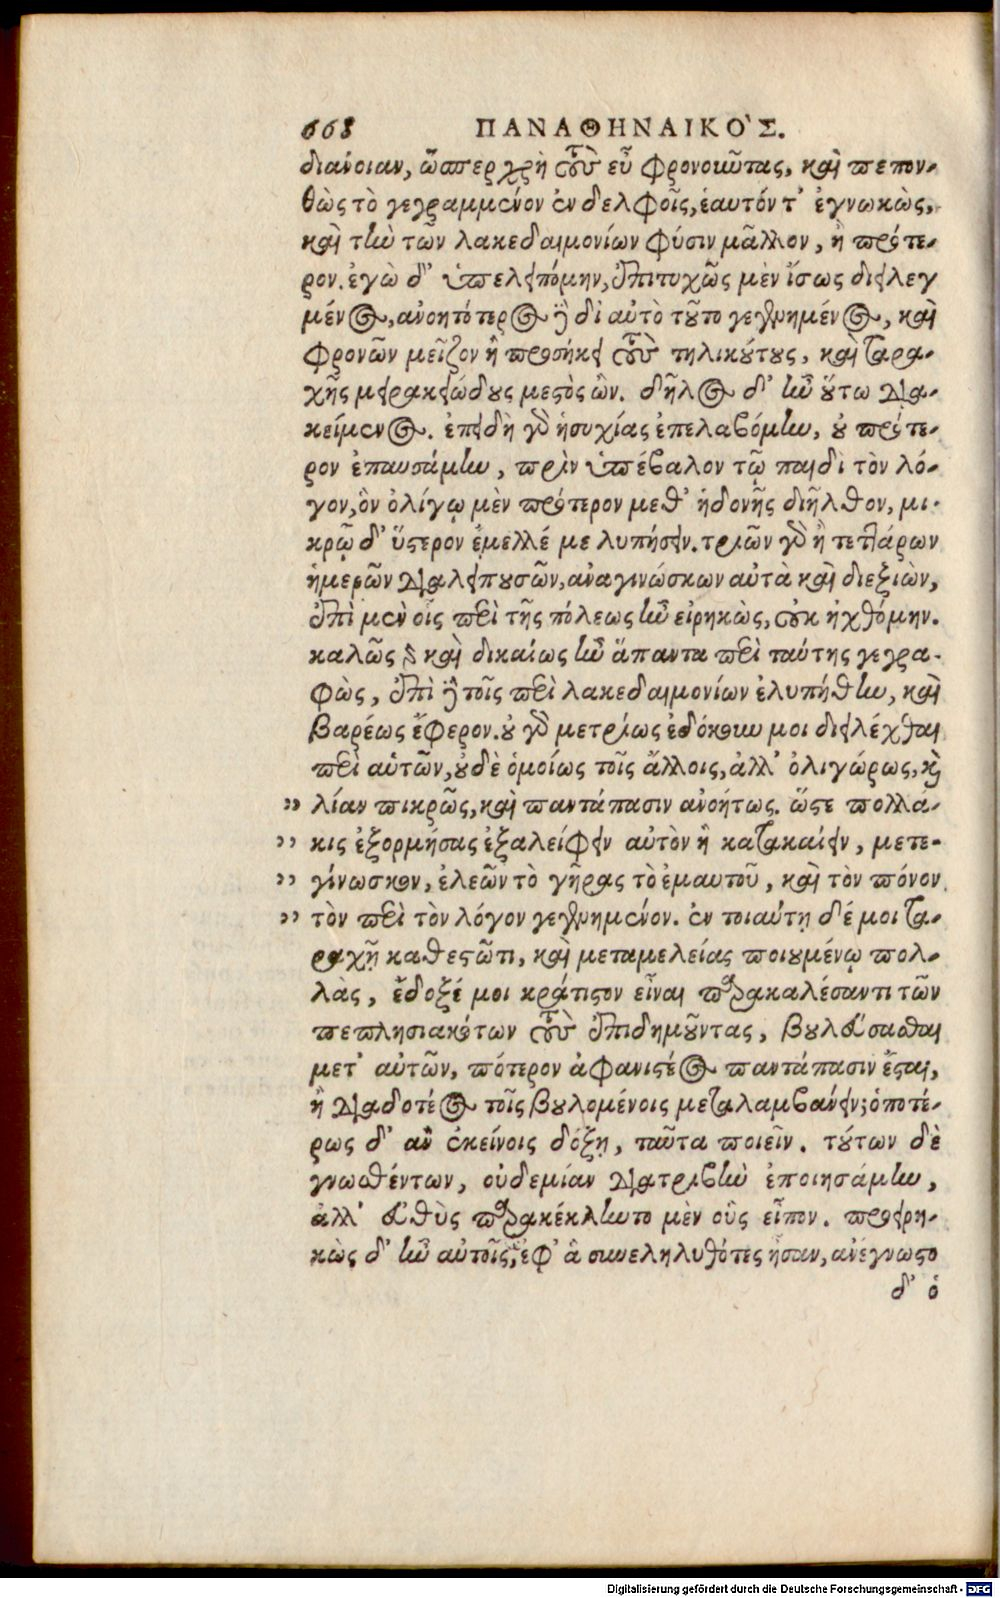 668 ΠΑΝΑΘΗΝΑΙΚΟ'Σ.
διάνοιαν, ὥσπερ χρὴ τοὺς εὖ φρονοιῶτας, καὶ πεπον-
θὼς τὸ γεγραμμένον ἐν δελφοῖς, ἑαυτόν τ' ἐγνωκὼς,
καὶ τὴν τῶν λακεδαιμονίων φύσιν μᾶλλον, ἢ πρότε-
ρον. ἐγὼ δ' ὑπελειπόμην, ἐπιτυχῶς μὲν ἴσως διειλεγ
μένος, ἀνοητότερος δὲ δἰ αὐτὸ τοῦτο γεγενημένος, καὶ
φρονῶν μεῖζον ἢ προσήκει τοὺς τηλικούτους, καὶ ταρα-
χῆς μειρακειώδους μεστὸς ὤν. δῆλος δ' ἦν οὕτω δια-
κείμενος. ἐπειδὴ γὰρ ἡσυχίας ἐπελαβόμην, οὐ πρότε-
ρον ἐπαυσάμην, πρὶν ὑπέβαλον τῷ παιδὶ τὸν λό-
γον, ὃν ὀλίγῳ μὲν πρότερον μεθ' ἡδονῆς διῆλθον, μι-
κρῷ δ' ὕστερον ἐμελλέ με λυπήσειν. τριῶν γὰρ ἢ τεττάρων
ἡμερῶν διαλειπουσῶν, ἀναγινώσκων αὐτὰ καὶ διεξιὼν,
ἐπὶ μὲν οἷς περὶ τῆς πόλεως ἦν εἰρηκὼς, οὐκ ἠχθόμην.
καλῶς γὰρ καὶ δικαίως ἦν ἅπαντα περὶ ταύτης γεγρα-
φὼς, ἐπὶ δὲ τοῖς περὶ λακεδαιμονίων ἐλυπήθην, καὶ
βαρέως ἔφερον. οὐ γὰρ μετρίως ἐδόκουν μοι διειλέχθαι
περὶ αὐτῶν, οὐδὲ ὁμοίως τοῖς ἄλλοις, ἀλλ' ὀλιγώρως, καὶ
„ λίαν πικρῶς, καὶ παντάπασιν ἀνοήτως. ὥστε πολλά-
„ κις ἐξορμήσας ἐξαλείφειν αὐτὸν ἢ κατακαίειν, μετε-
„ γίνωσκον, ἐλεῶν τὸ γῆρας τὸ ἐμαυτοῦ, καὶ τὸν πόνον
„ τὸν περὶ τὸν λόγον γεγενημένον. ἐν τοιαύτῃ δέ μοι τα-
ραχῇ καθεστῶτι, καὶ μεταμελείας ποιουμένῳ πολ-
λὰς, ἔδοξέ μοι κράτιστον εἶναι παρακαλέσαντι τῶν
πεπλησιακότων τοὺς ἐπιδημοῦντας, βουλεύσασθαι
μετ' αὐτῶν, πότερον ἀφανιστέος παντάπασιν ἔσται,
ἢ διαδοτέος τοῖς βουλομένοις μεταλαμβάνειν; ὁποτέ-
ρως δ' ἂν ἐκείνοις δόξῃ, ταῦτα ποιεῖν. τούτων δὲ
γνωσθέντων, οὐδεμίαν διατριβὴν ἐποιησάμην,
ἀλλ' εὐθὺς παρακέκληντο μὲν οὓς εἶπον. προειρη-
κὼς δ' ἦν αὐτοῖς, ἐφ' ἃ συνεληλυθότες ἦσαν, ἀνέγνωστο
δ' ὁ
Digitalisierung gefördert durch die Deutsche Forschungsgemeinschaft - DFG